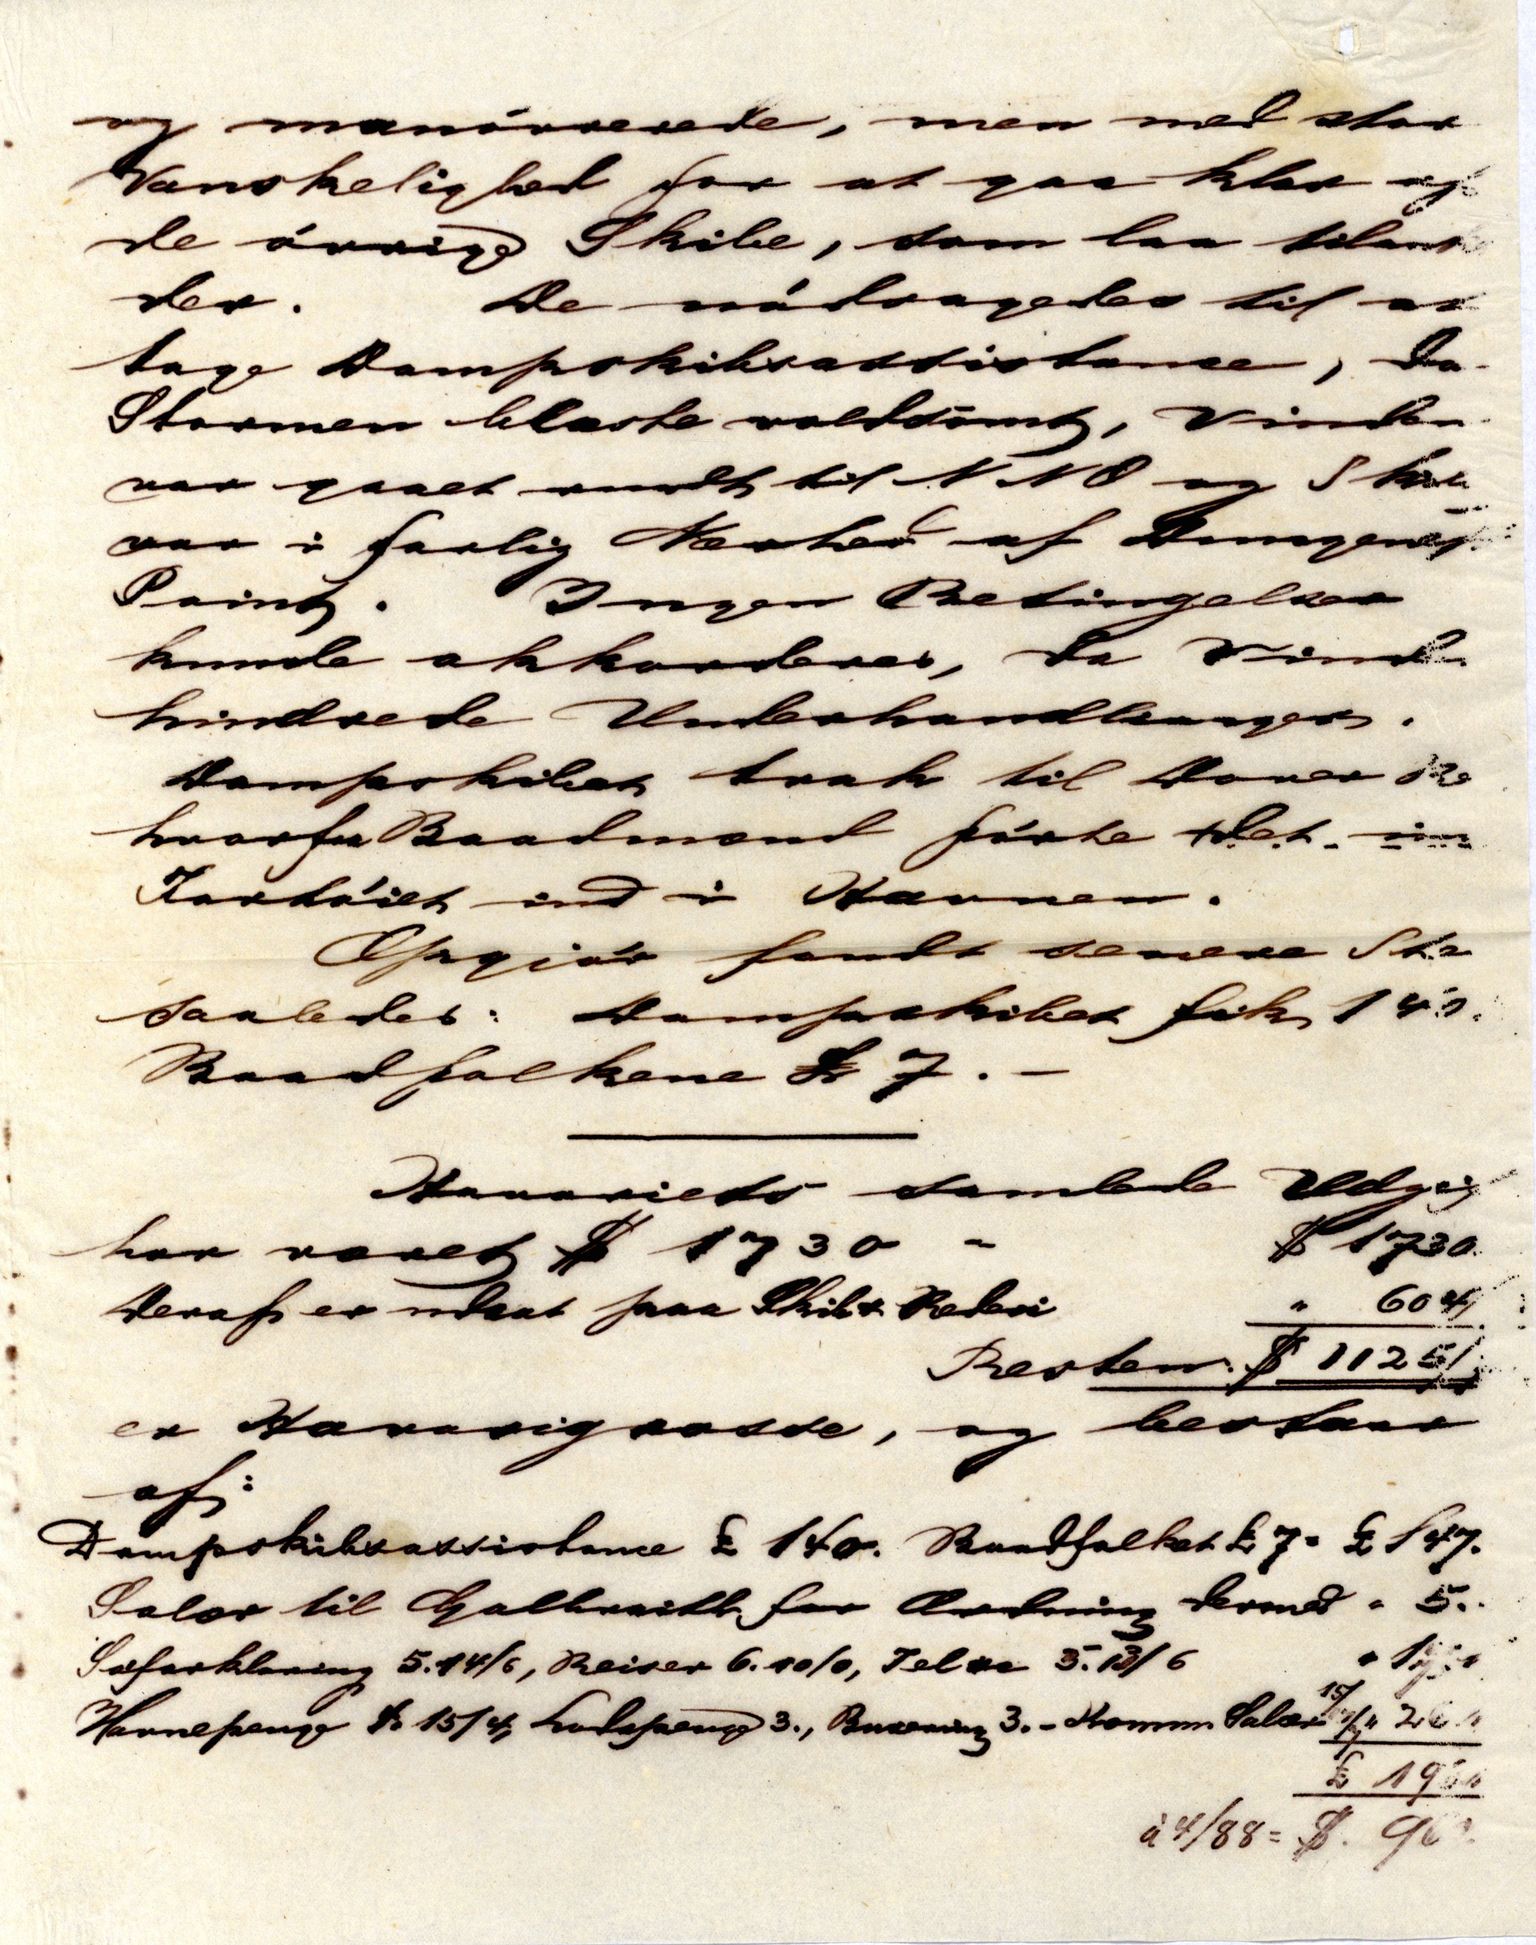 og manövrerede, men med stor
Vanskelighed for at gaa klar af
de övrige Skibe, som laa tilankers
der. De nödsagedes til at
tage Dampskibsassistance, da
Stormen blæste voldsomt, Vinden
var gaaet rundt til NNO og Skibet
var i farlig Nærhed af Dungeness
Point. Ingen Betingelser
kunde akkorderes, da Vinden
hindrede Underhandlinger.
Dampskibet trak til Dover Red
hvorfra Baadmænd förte det
Fartöiet ind i Havnen.
Opgjör fandt senere Sted
saaledes: Dampskibet fik 140.
Baadfolkene £ 7. —
Havariets samlede Udgift
har været $ 1730 " $ 1730.
Deraf er udsat paa Skib & Rederi " 604
Resten: $ 1125
er Havarigrosse, og bestaar
af:
Dampskibsassistance £ 140. Baadfolket £ 7 = £ 147.
Salær til Galbraith for Ordning dermed " 5.
Söforklaring 5.14/6, Reiser 6.10/0, Telgr 3.13/6 "
Havnepenge £ 15/4, Lodspenge 3., Buxering 3. - Komm. Salær
£
à 4/88 = $.